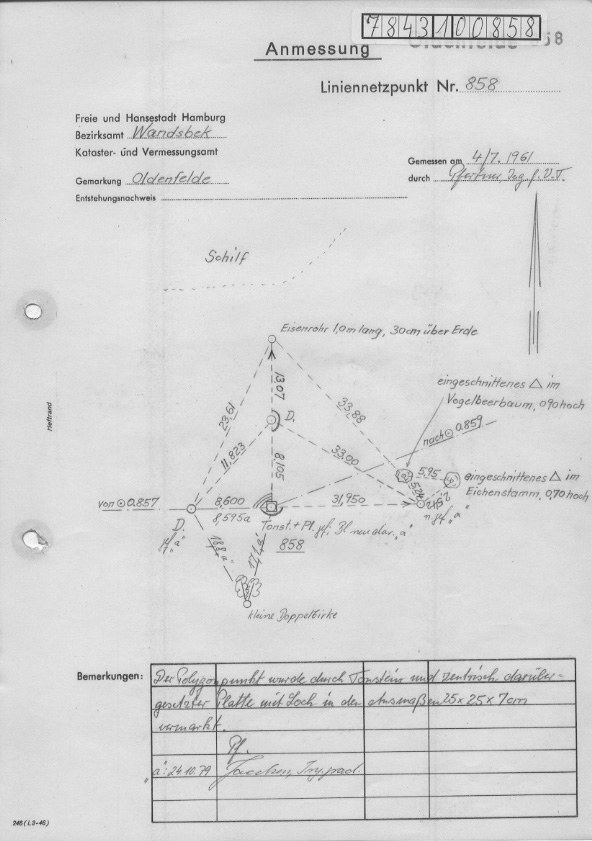 7843100858
Anmessung
Liniennetzpunkt Nr. 858
Freie und Hansestadt Hamburg
Bezirksamt Wandsbek
Kataster- und Vermessungsamt
Gemessen am 4/7. 1961
Gemarkung Oldenfelde
durch
Entstehungsnachweis
Schilf
Eisenrohr 1,0m lang, 30cm über Erde
13,07
23,61
33,88
eingeschnittenes △ im
Vogelbeerbaum, 0,90 hoch
D.
nach ⊙ 0.859
11,823
8,105
33,00
5,95
eingeschnittenes △ im
Eichenstamm, 0,70 hoch
von ⊙ 0.857
8,600
31,950
8,595a
D.
Tonst. + Pl. gf. Bl neu dar. "a"
gf. "a"
n. gf. "a"
858
kleine Doppelbirke
Heftrand
Bemerkungen:
Der Polygonpunkt wurde durch Tonstein und zentrisch darüber=
gesetzter Platte mit Loch in den Ausmaßen 25 x 25 x 7cm
vermarkt.
Pf.
"a": 24.10.79 Jacobsen,